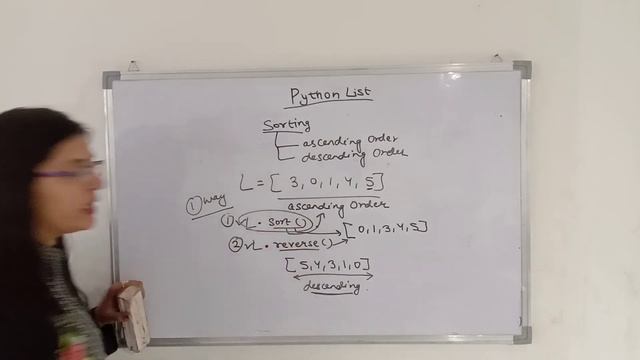 Python List
Sorting
ascending order
descending order
L = [ 3, 0, 1, 4, 5 ]
① way
ascending order
① L . sort ( )
[ 0, 1, 3, 4, 5 ]
② L . reverse ( )
[ 5, 4, 3, 1, 0 ]
descending.